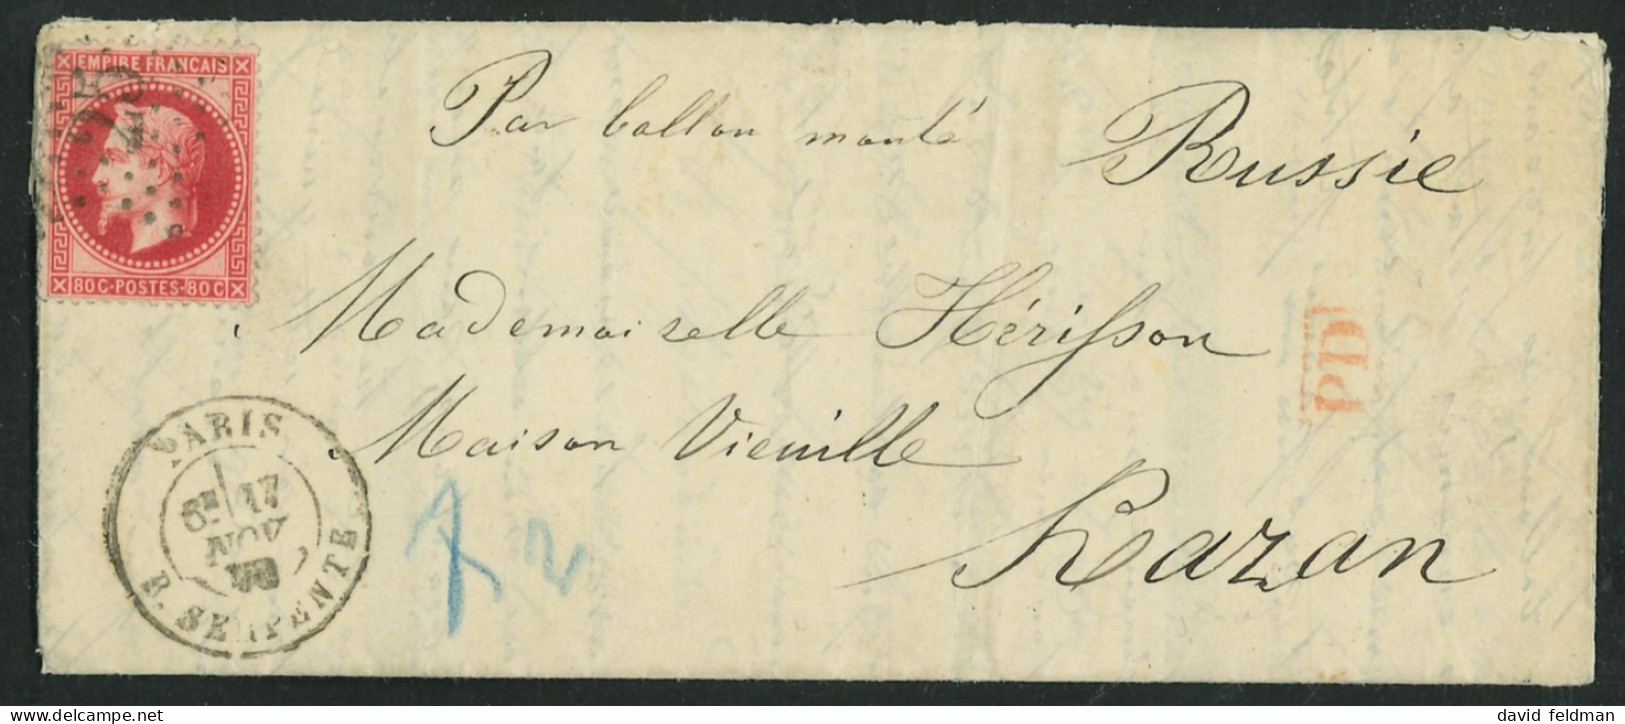 EMPIRE FRANCAIS
80 C·POSTES·80 C
Par ballon monté
Russie
Mademoiselle Hérisson
Maison Vieuille
Kazan
PD
PARIS
17
NOV
R. SERPENTE
72
david feldman